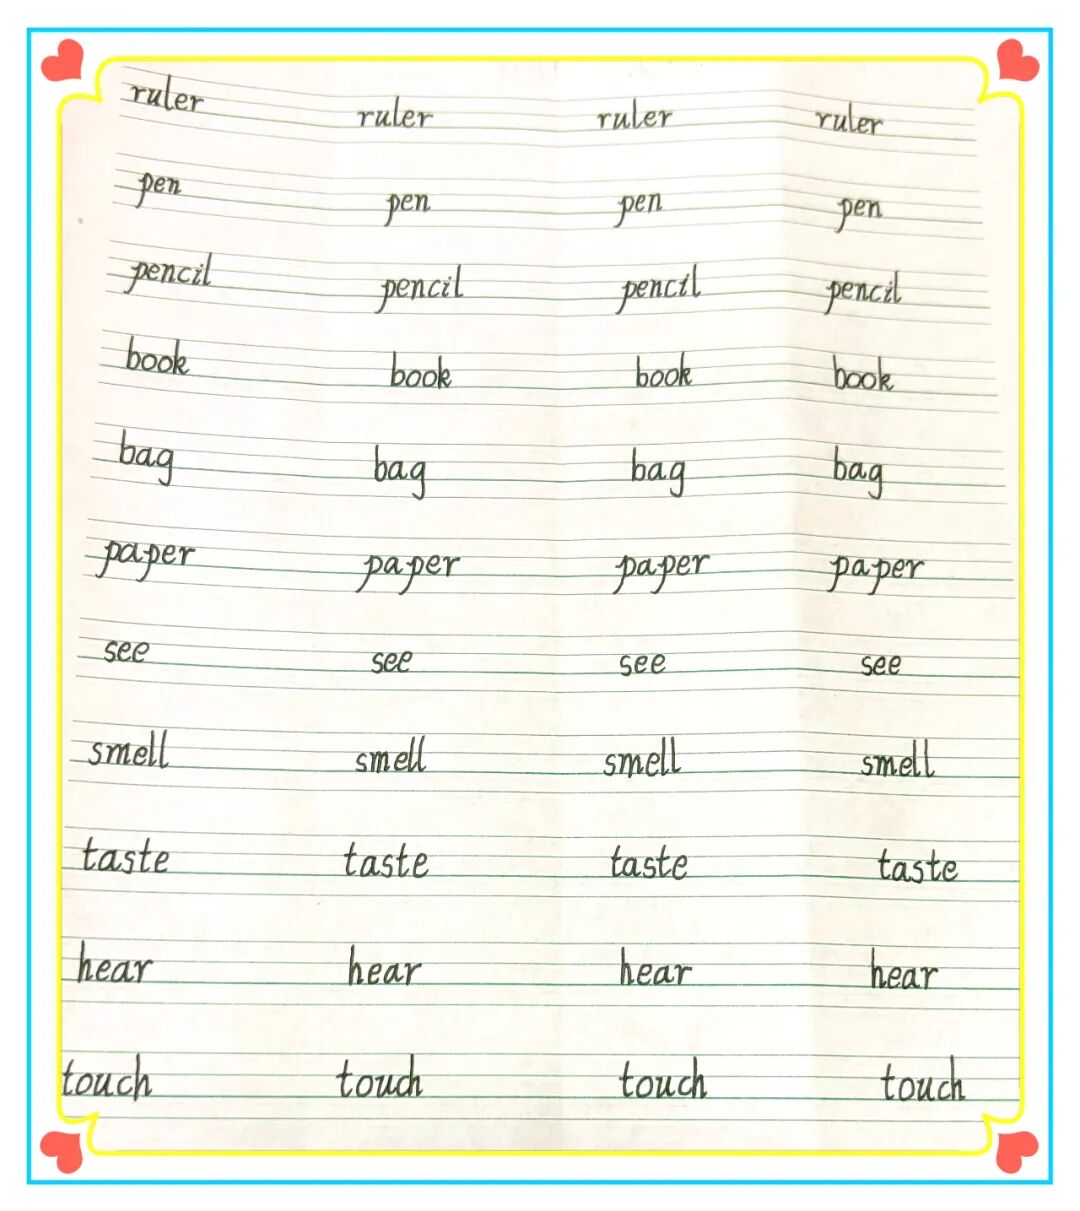 ruler ruler ruler ruler
pen pen pen pen
pencil pencil pencil pencil
book book book book
bag bag bag bag
paper paper paper paper
see see see see
smell smell smell smell
taste taste taste taste
hear hear hear hear
touch touch touch touch